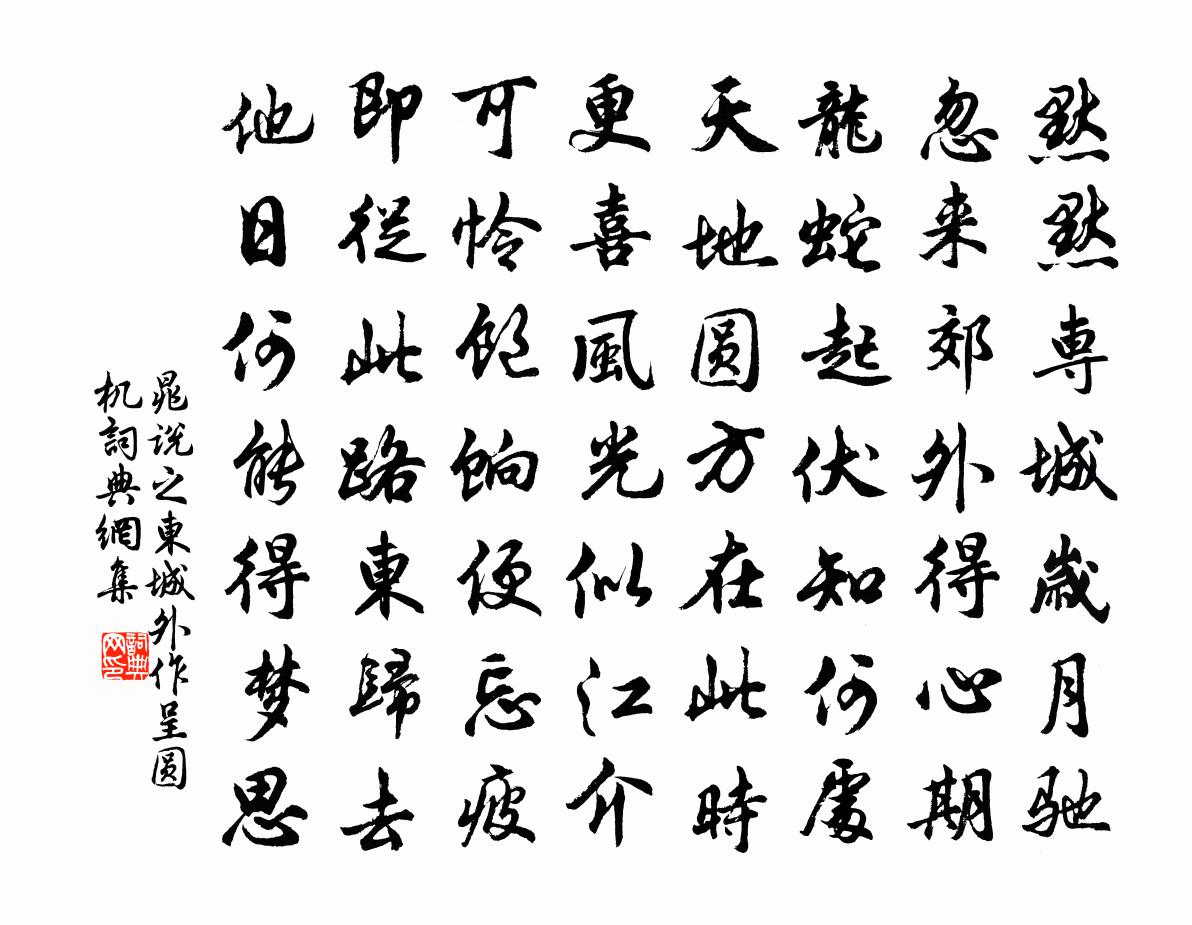 默默専城歲月驰
忽来郊外得心期
龍蛇起伏知何處
天地圆方在此時
更喜風光似江介
可怜飽餉便忘疲
即從此路東歸去
他日何能得梦思
晁说之東城外作呈圆
机詞典網集
詞典
网印